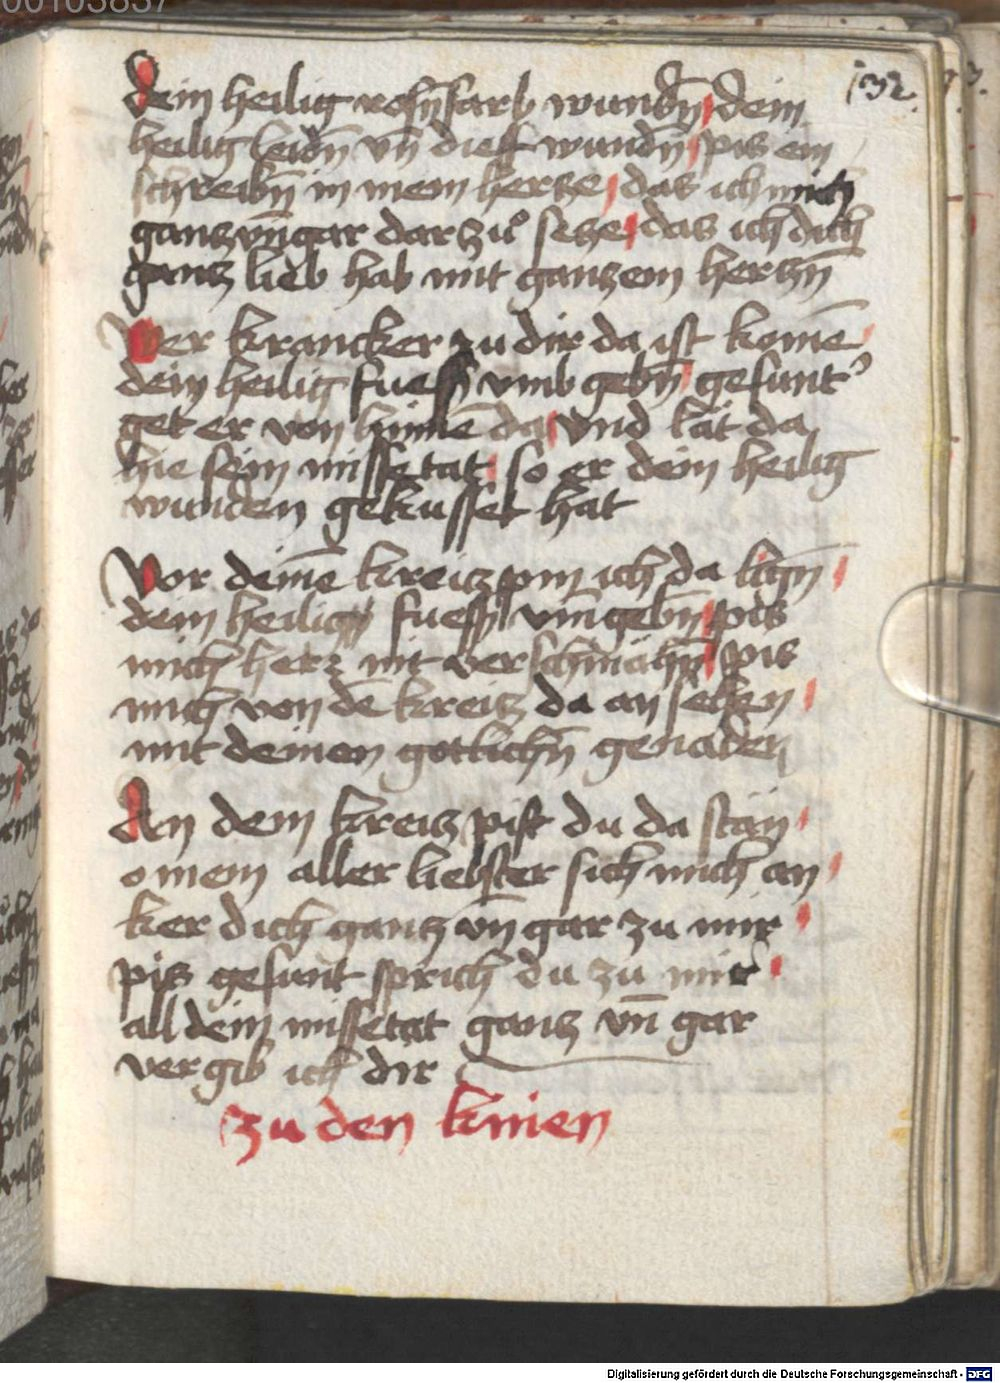 00103837
132.
dein heilig rosn̄farb wundn̄ dein
heilig leidn̄ vn̄ dieff wundn̄ pis ein
schreibn̄ in mein hercze das ich mich
gancz vn̄ gar dar zu secze das ich dich
gancz lieb hab mit ganczem herczn̄
Der krancker zu dir da ist komē
dein heilig fuessz vmb gebn̄ gesunt
get er von hinnē da vnd lat da
hie sein missetat so er dein heilig
wunden gekusset hat
Vor deinē kreicz pin ich da lign̄
dein heilig fuessz vm̄gebn̄ pis
mich herz nit verschmähn̄ pis
mich von dē kreicz da an sehen
mit deinen gotlichn̄ genaden
An dem kreicz pist du da stan
o mein aller liebster sich mich an
ker dich gancz vn̄ gar zu mir
pis gesunt sprich du zu mir
all dein missetat gancz vn̄ gar
vergib ich dir
zu den knien
Digitalisierung gefördert durch die Deutsche Forschungsgemeinschaft - DFG